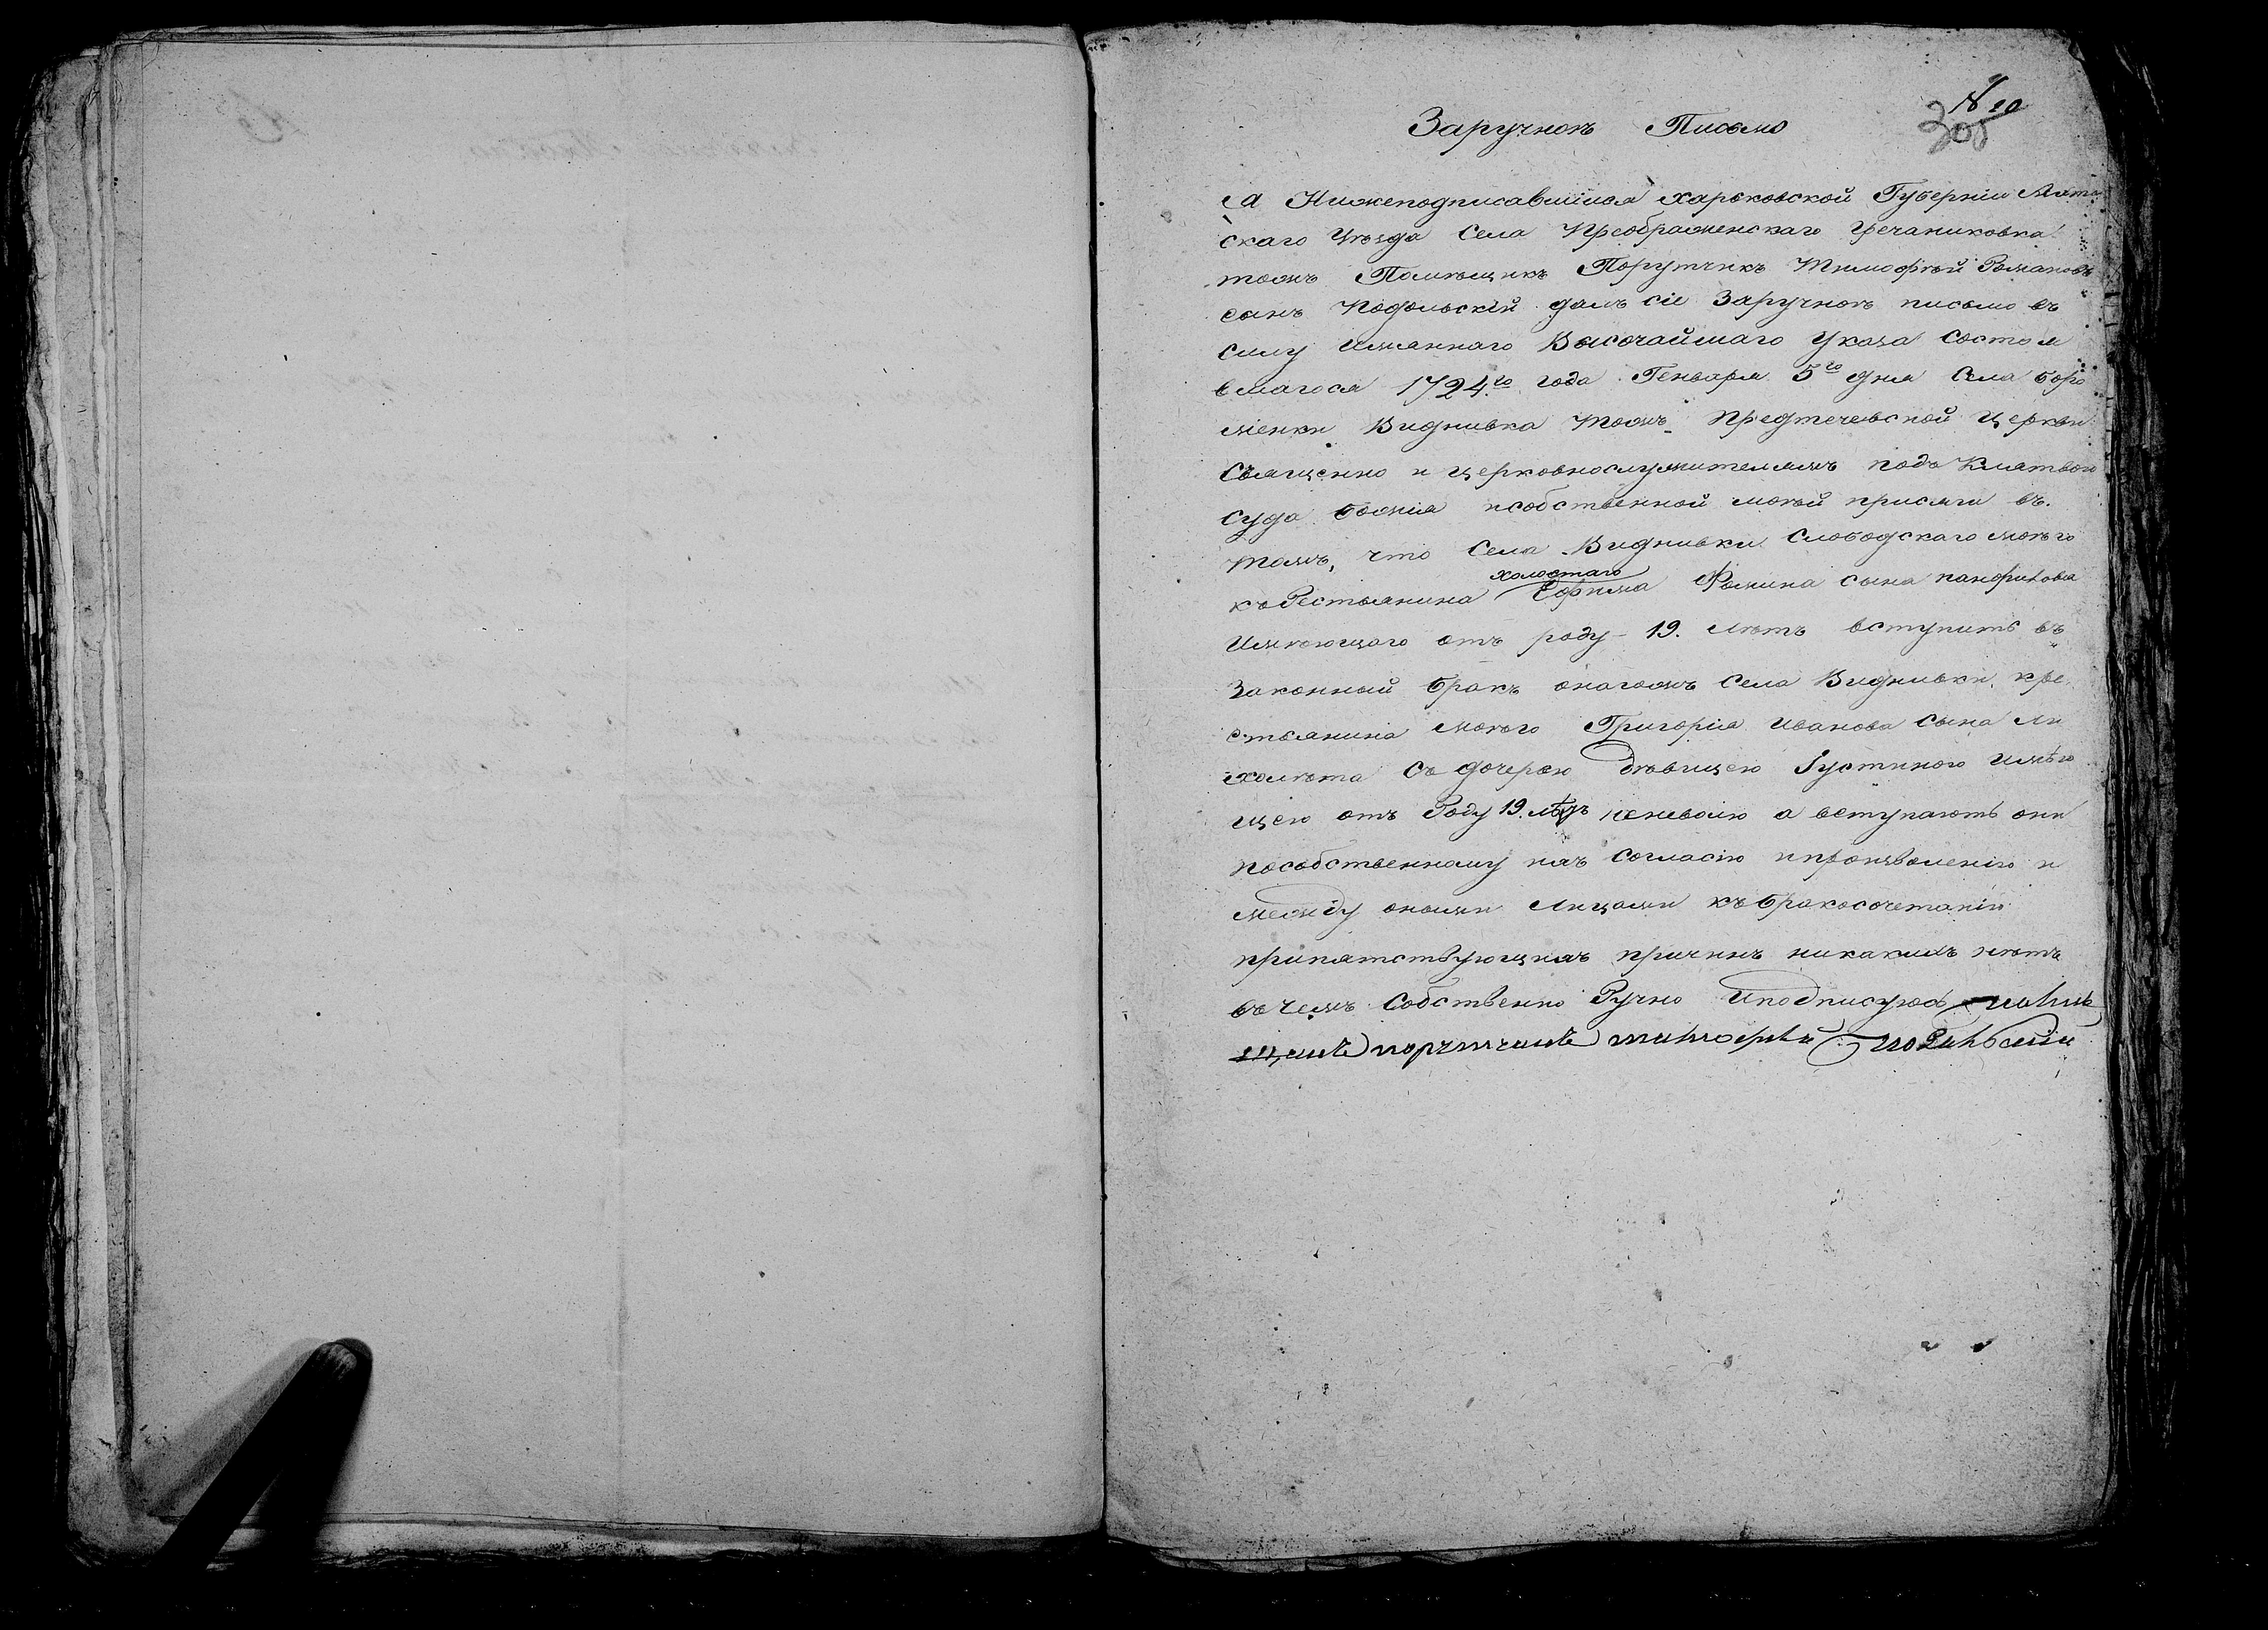 № 10
305
Заручноѣ Письмо
Я Нижеподписавшійся харьковской Губерніи
скаго Уѣзда Села Преображенскаго Гречаниковка
тожъ Помѣщикъ Порутчикъ Тимофѣй Романовъ
сынъ Подольскій далъ сіе Заручноѣ письмо въ
силу имяннаго Высочайшаго Указа Состояв
вшагося 1724.го года Генваря 5го дня Села Боро
мленки Видниька Тожъ Предтечевской Церкви
Священно и церковнослужителямъ подъ Клятвою
Суда божія исобственной моѣй присяги въ
томъ, что Села Виднивки Слободскаго моѣго
холостаго
къРестьянина Ефима Фомина сына панфилова
Имѣющаго отъ роду 19. лѣтъ вступить въ
Законный бракъ онагожъ Села Виднивки кре
стьянина моѣго Григорія Иванова Сына Ли
холѣта Съ дочерью дѣвицею Іустиною имѣю
щею отъ Роду 19. лѣтъ неневолю а вступають они
пособственному ихъ Согласію ипроизволенію и
между оными Лицами къбракосочетаніи
припятствующихъ причинъ никакихъ нѣтъ
въчемъ Собственно Ручно Иподписуюсь помѣ
щикъ порутчикъ тимофѣй подольскій